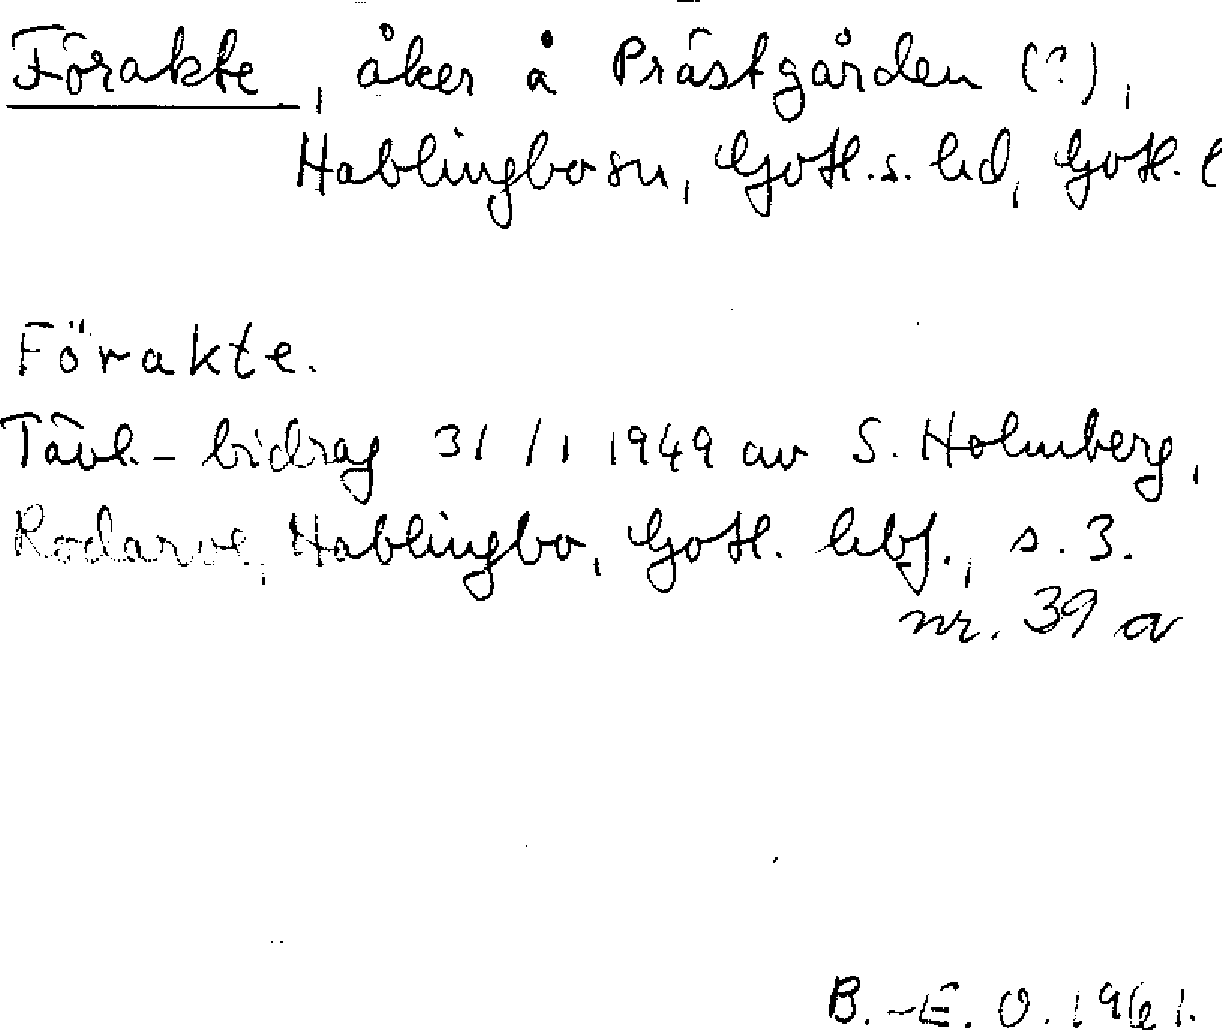 Förakte, åker å Prästgården (?),
Hablingbo sn, Gotl. s. hd, Gotl. l
Förakte.
Tävl.-bidrag 31/1 1949 av S. Holmberg,
Rodarve, Hablingbo, Gotl. hbf., s. 3.
nr. 39 a
B.-E. O. 1961.